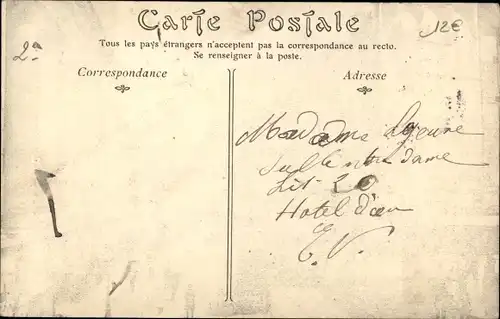 Carte Postale
Tous les pays étrangers n'acceptent pas la correspondance au recto.
Se renseigner à la poste.
Correspondance
Adresse
12€
2a
Madame
Salle notre dame
Lit 20
Hotel d
E. V.